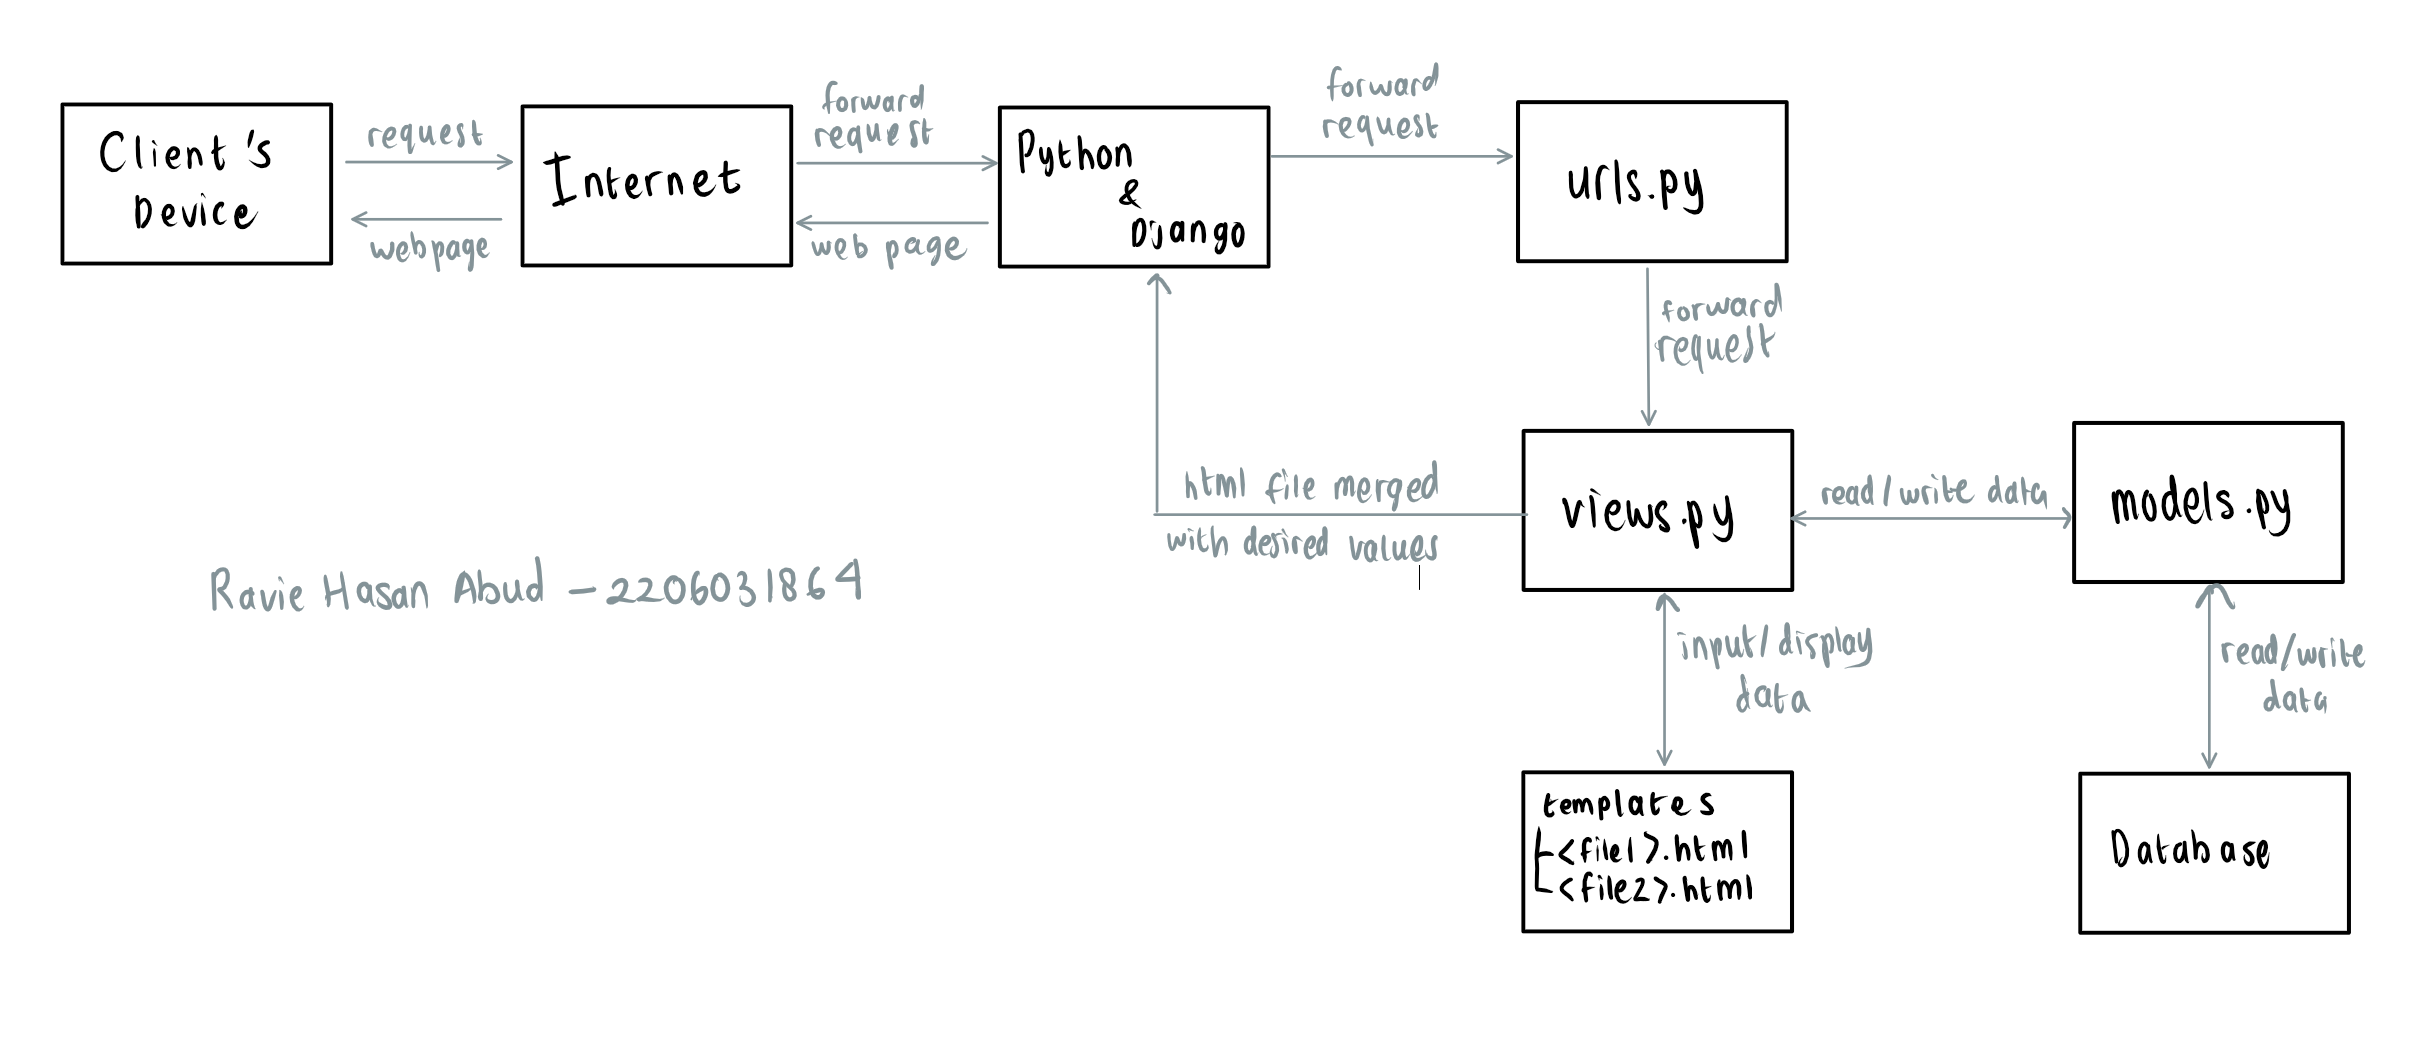 Client's
Device
request
webpage
Internet
forward
request
web page
Python
&
Django
forward
request
urls.py
forward
request
html file merged
with desired values
views.py
read/write data
models.py
Ravie Hasan Abud - 2206031864
input/display
data
read/write
data
templates
<file1>.html
<file2>.html
Database